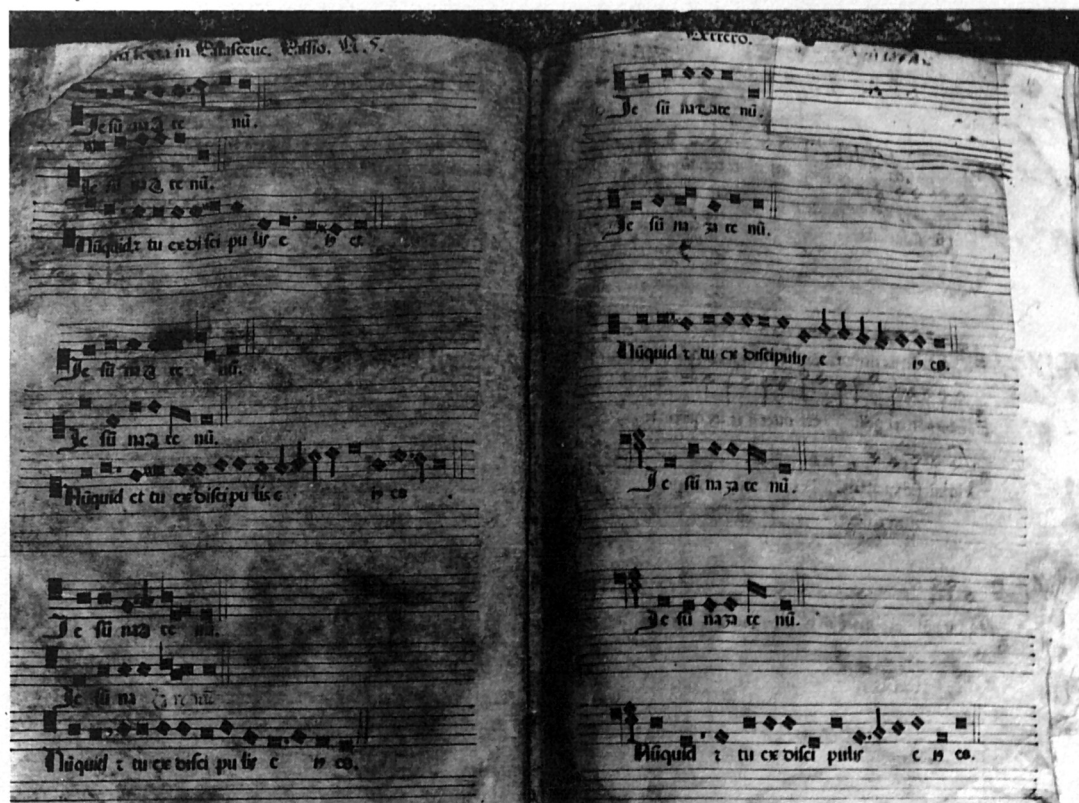 in Parasceue. Passio. A. 5.
Je sū naza re nū.
Je sū naza re nū.
Nūquid ⁊ tu ex disci pu lis e ıꝰ es
Je sū naza re nū.
Je sū naza re nū.
Nūquid et tu ex disci pu lis e ıꝰ es
Je sū naza re nū.
Je sū na za re nū.
Nūquid ⁊ tu ex disci pu lis e ıꝰ es.
Je sū nazare nū.
Je sū na za re nū.
Nūquid ⁊ tu ex discipulis e ıꝰ es.
Je sū na za re nū.
Je sū naza re nū.
Nūquid ⁊ tu ex disci pulis e ıꝰ es.